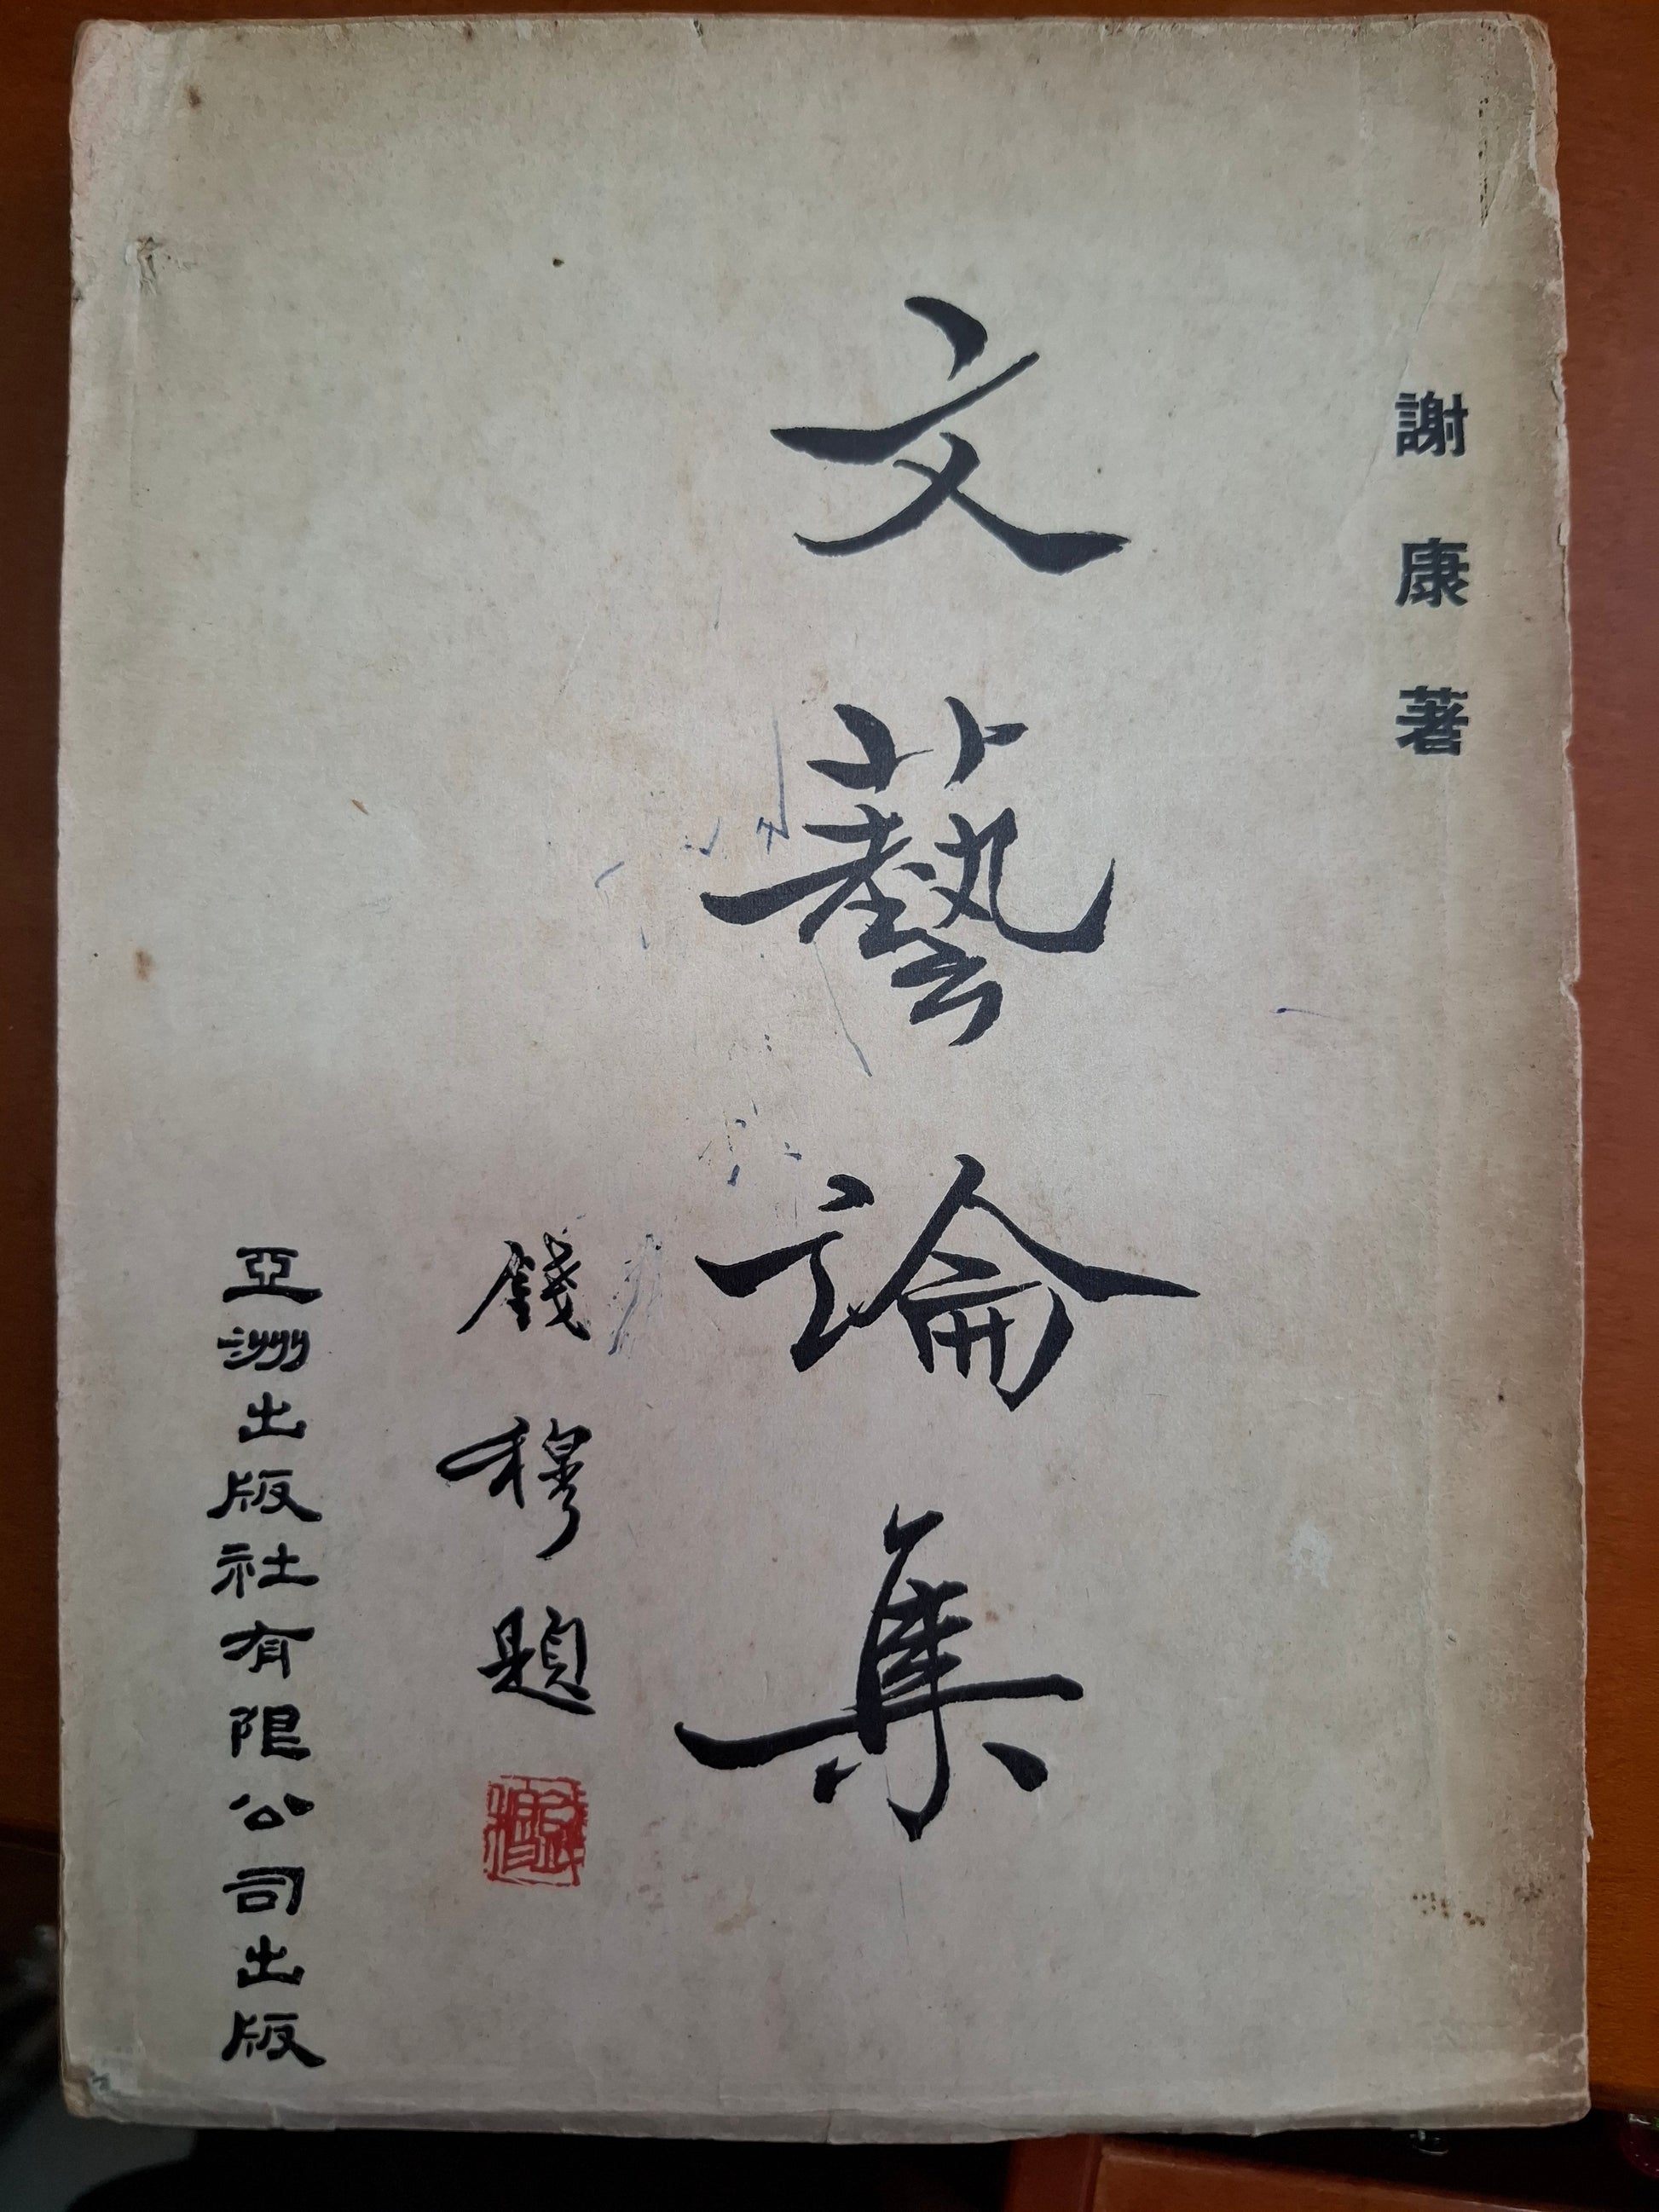 謝康著
文藝論集
錢穆題
亞洲出版社有限公司出版